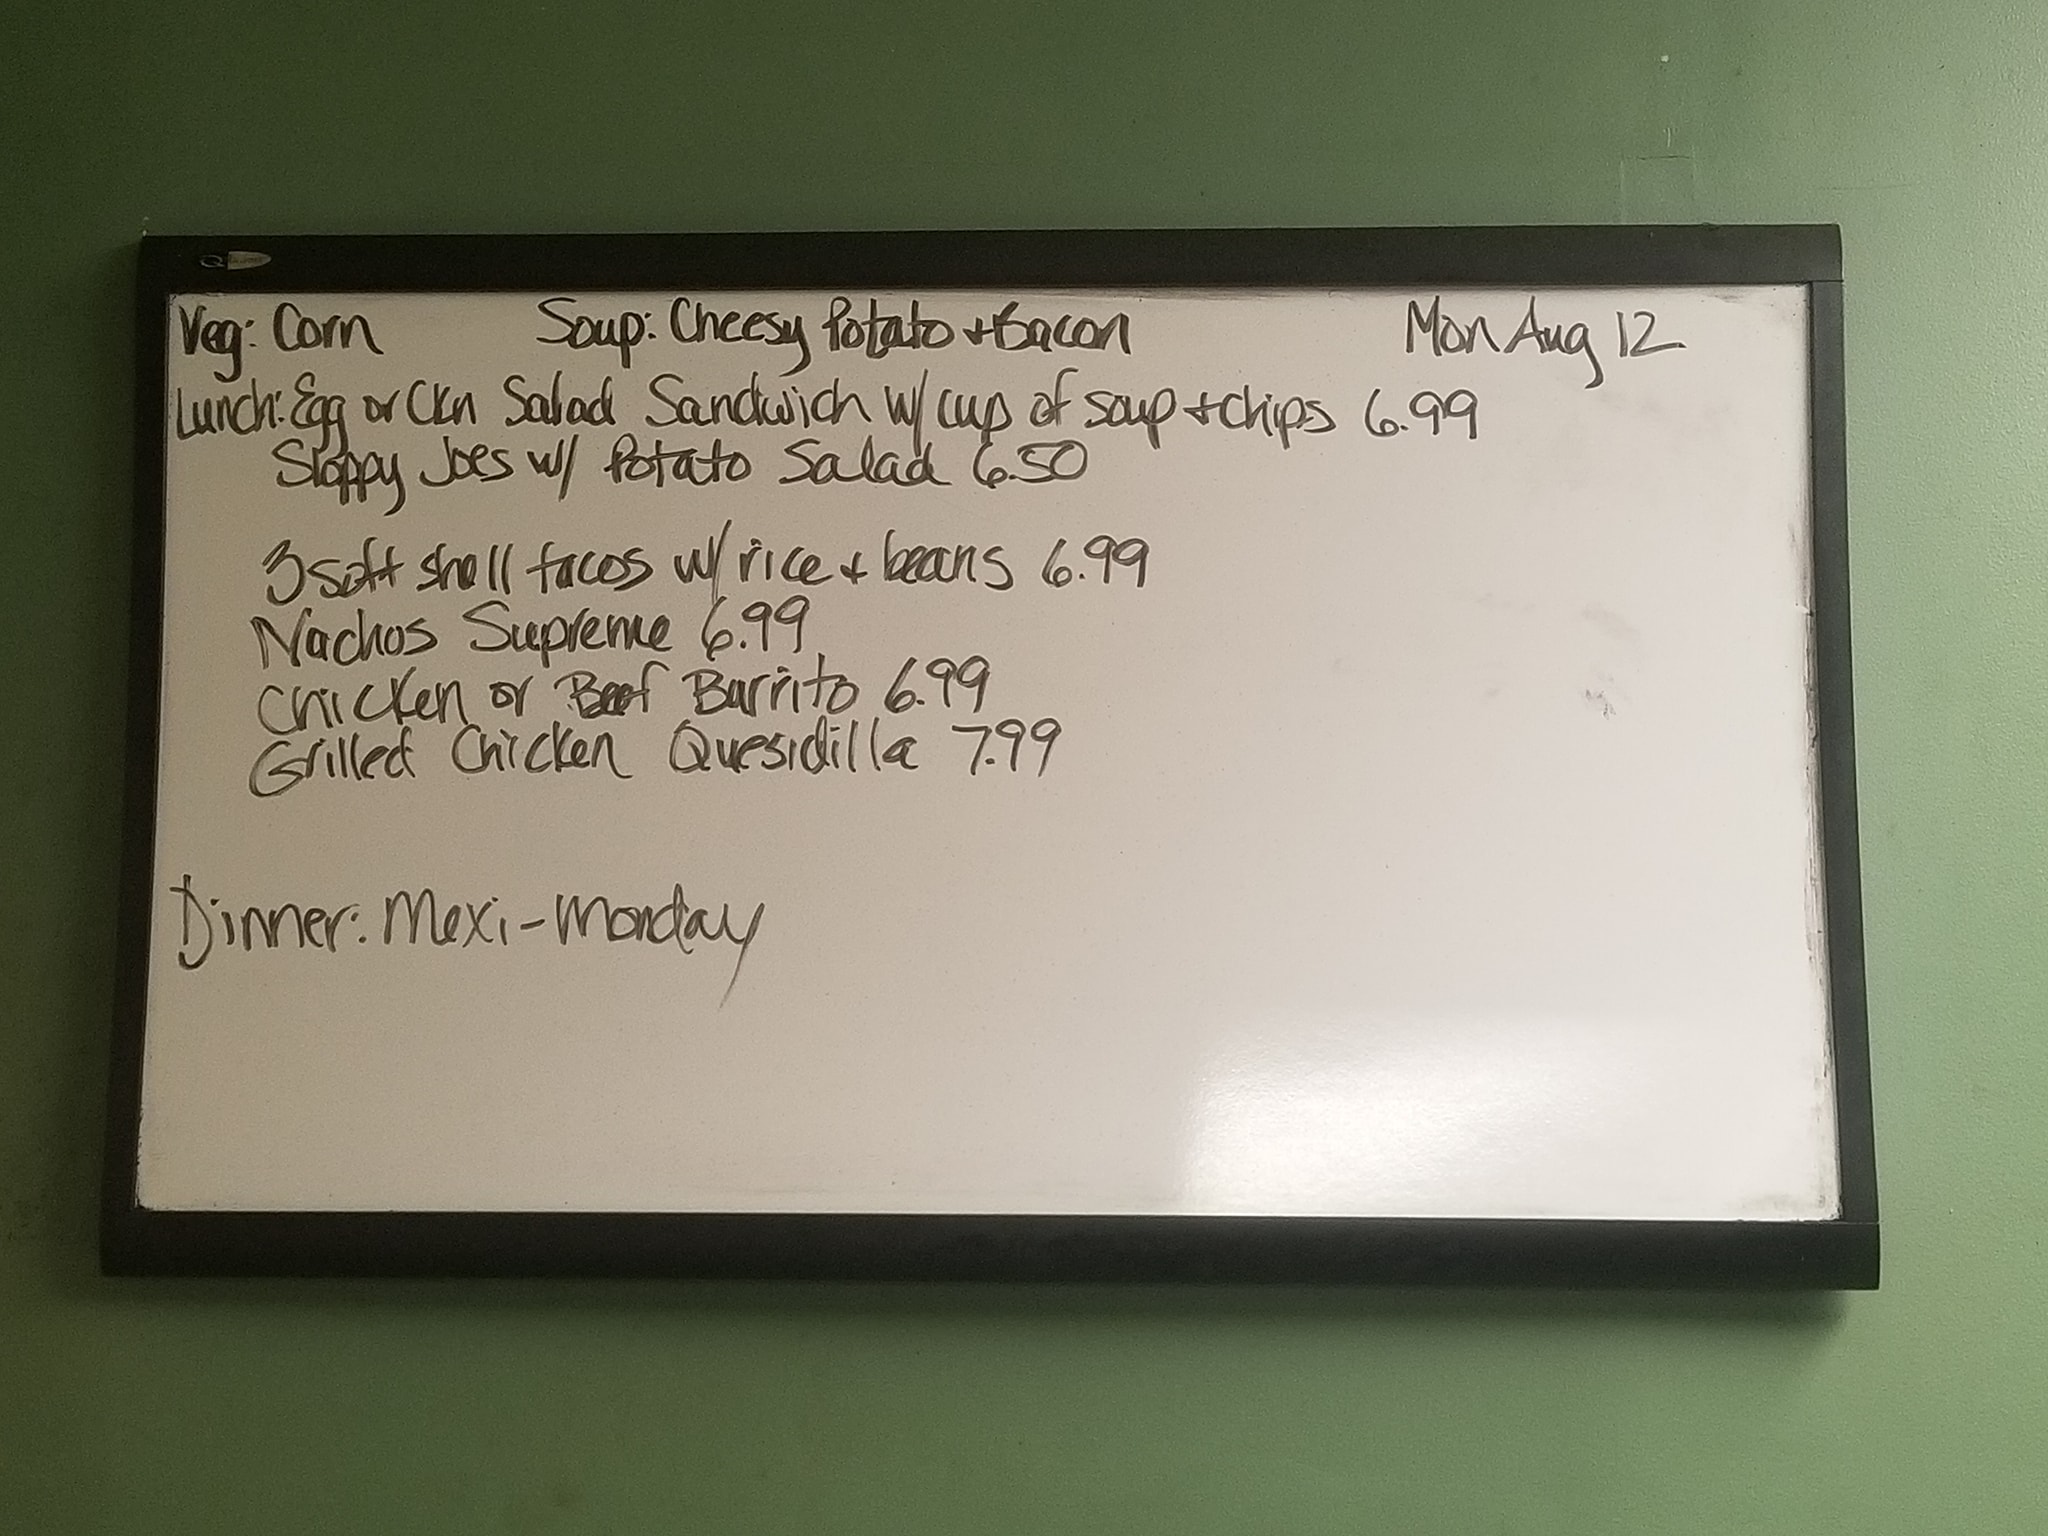 Veg: Corn Soup: Cheesy Potato + Bacon Mon Aug 12
Lunch: Egg or Ckn Salad Sandwich w/ cup of soup + chips 6.99
Sloppy Joes w/ Potato Salad 6.50
3 soft shell tacos w/ rice + beans 6.99
Nachos Supreme 6.99
Chicken or Beef Burrito 6.99
Grilled Chicken Quesidilla 7.99
Dinner: Mexi-Monday